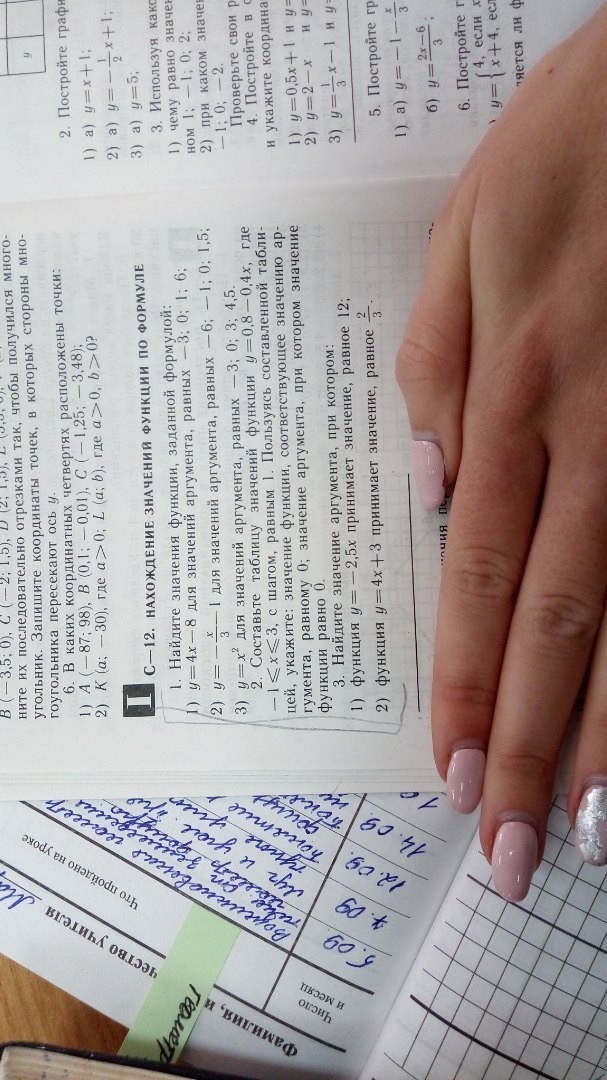 B (−3,5; 0), C (−2; 1,5), D (2; 1,5), E
ните их последовательно отрезками так, чтобы получился много-
угольник. Запишите координаты точек, в которых стороны мно-
гоугольника пересекают ось y.
6. В каких координатных четвертях расположены точки:
1) A (−87; 98), B (0,1; −0,01), C (−1,25; −3,48);
2) K (a; −30), где a>0; L (a; b), где a>0, b>0?
I С—12. НАХОЖДЕНИЕ ЗНАЧЕНИЙ ФУНКЦИИ ПО ФОРМУЛЕ
1. Найдите значения функции, заданной формулой:
1) y=4x−8 для значений аргумента, равных −3; 0; 1; 6;
2) y=−x/3−1 для значений аргумента, равных −6; −1; 0; 1,5;
3) y=x² для значений аргумента, равных −3; 0; 3; 4,5.
2. Составьте таблицу значений функции y=0,8−0,4x, где
−1⩽x⩽3, с шагом, равным 1. Пользуясь составленной табли-
цей, укажите: значение функции, соответствующее значению ар-
гумента, равному 0; значение аргумента, при котором значение
функции равно 0.
3. Найдите значение аргумента, при котором:
1) функция y=−2,5x принимает значение, равное 12;
2) функция y=4x+3 принимает значение, равное 2/3.
y
2. Постройте графи
1) а) y=x+1;
2) а) y=−1/2x+1;
3) а) y=5;
3. Используя
1) чему равно значен
ном 1; −1; 0; 2;
2) при каком значен
−1; 0; −2.
Проверьте свои р
4. Постройте в о
и укажите координат
1) y=0,5x+1 и y=
2) y=2−x и y=
3) y=1/3x−1 и y=
5. Постройте гр
1) а) y=−1−x/3
б) y=2x−6/3;
6. Постройте г
y={4, если x
x+4, если
яется ли ф
Фамилия, и
чество учителя
Число
и месяц
Что пройдено на уроке
5.09
7.09
12.09
14.09
Геометр